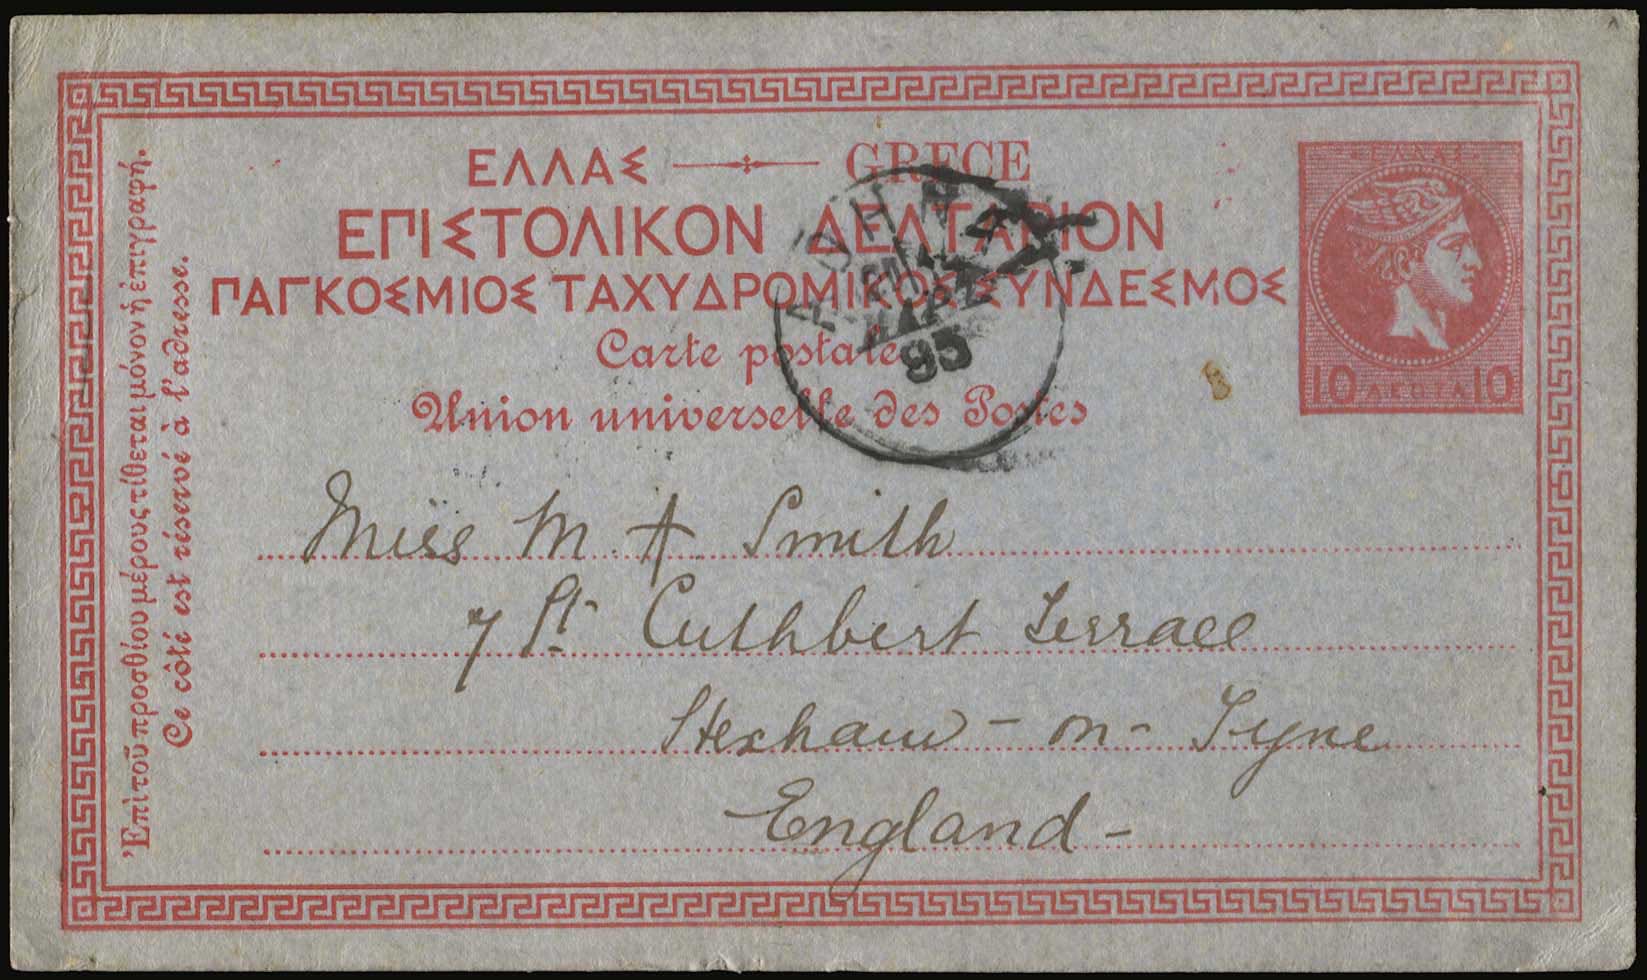 ΕΛΛΑΣ — GRECE
ΕΠΙΣΤΟΛΙΚΟΝ ΔΕΛΤΑΡΙΟΝ
ΠΑΓΚΟΣΜΙΟΣ ΤΑΧΥΔΡΟΜΙΚΟΣ ΣΥΝΔΕΣΜΟΣ
Carte postale
Union universelle des Postes
Ἐπὶ τοῦ προσθίου μέρους τίθεται μόνον ἡ ἐπιγραφή.
Ce côté est réservé à l'adresse.
ΕΛΛΑΣ
10 ΛΕΠΤΑ 10
ΑΘΗΝΑΙ
ΜΑΡΤ
95
Miss M A Smith
7 St Cuthbert Terrace
Hexham-on-Tyne
England-